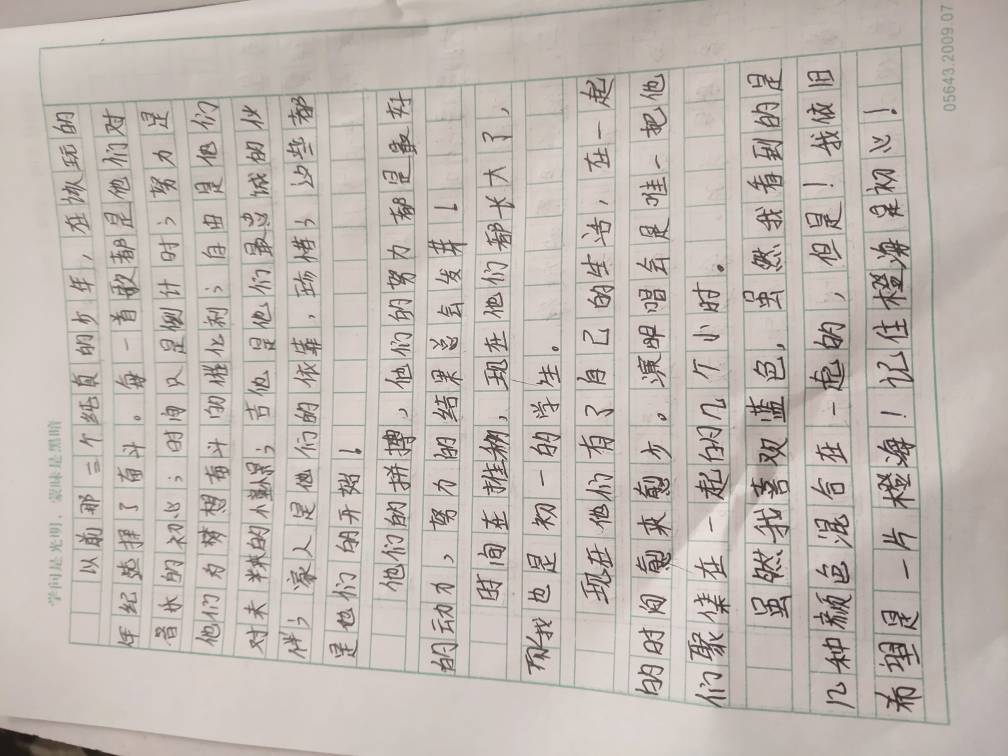 学问是光明，蒙昧是黑暗
以前那三个纯真的少年，在饮玩的
年纪选择了奋斗。每一首歌都是他们对
音乐的初心；时间只是倒计时；努力是
他们为梦想奋斗的催化剂；自由是他们
对未来的憧憬；吉他是他们最忠诚的伙
伴；家人是他们的依靠，珍惜；这些都
是他们的开始！
他们的拼搏，他们的努力都是最好
的动力，努力的结果总会发芽！
时间在推移，现在他们都长大了，
我也是初一的学生。
现在他们有了自己的生活，在一起
的时间愈来愈少。演唱会是唯一把他
们聚集在一起的几个小时。
虽然我喜欢蓝色，虽然我看到的是
几种颜色混合在一起的，但是！我依旧
希望是一片橙海！记住橙海是初心！
05643.2009.07